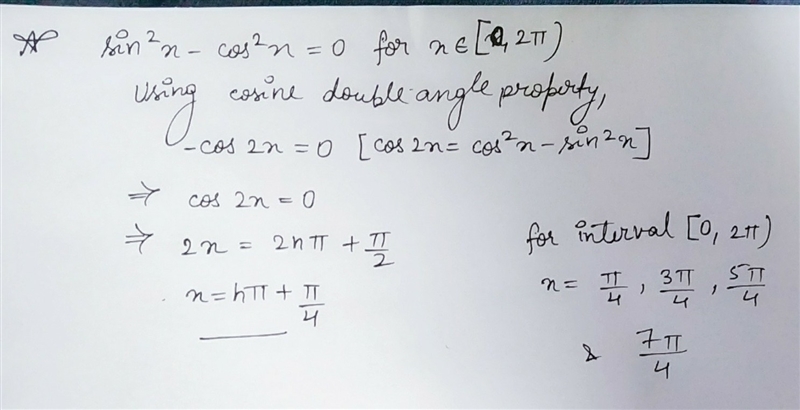 sin²x - cos²x = 0 for x ∈ [0, 2π)
Using cosine double angle property,
-cos 2x = 0 [cos 2x = cos²x - sin²x]
⇒ cos 2x = 0
⇒ 2x = 2nπ + π/2
x = nπ + π/4
for interval [0, 2π)
x = π/4, 3π/4, 5π/4
& 7π/4